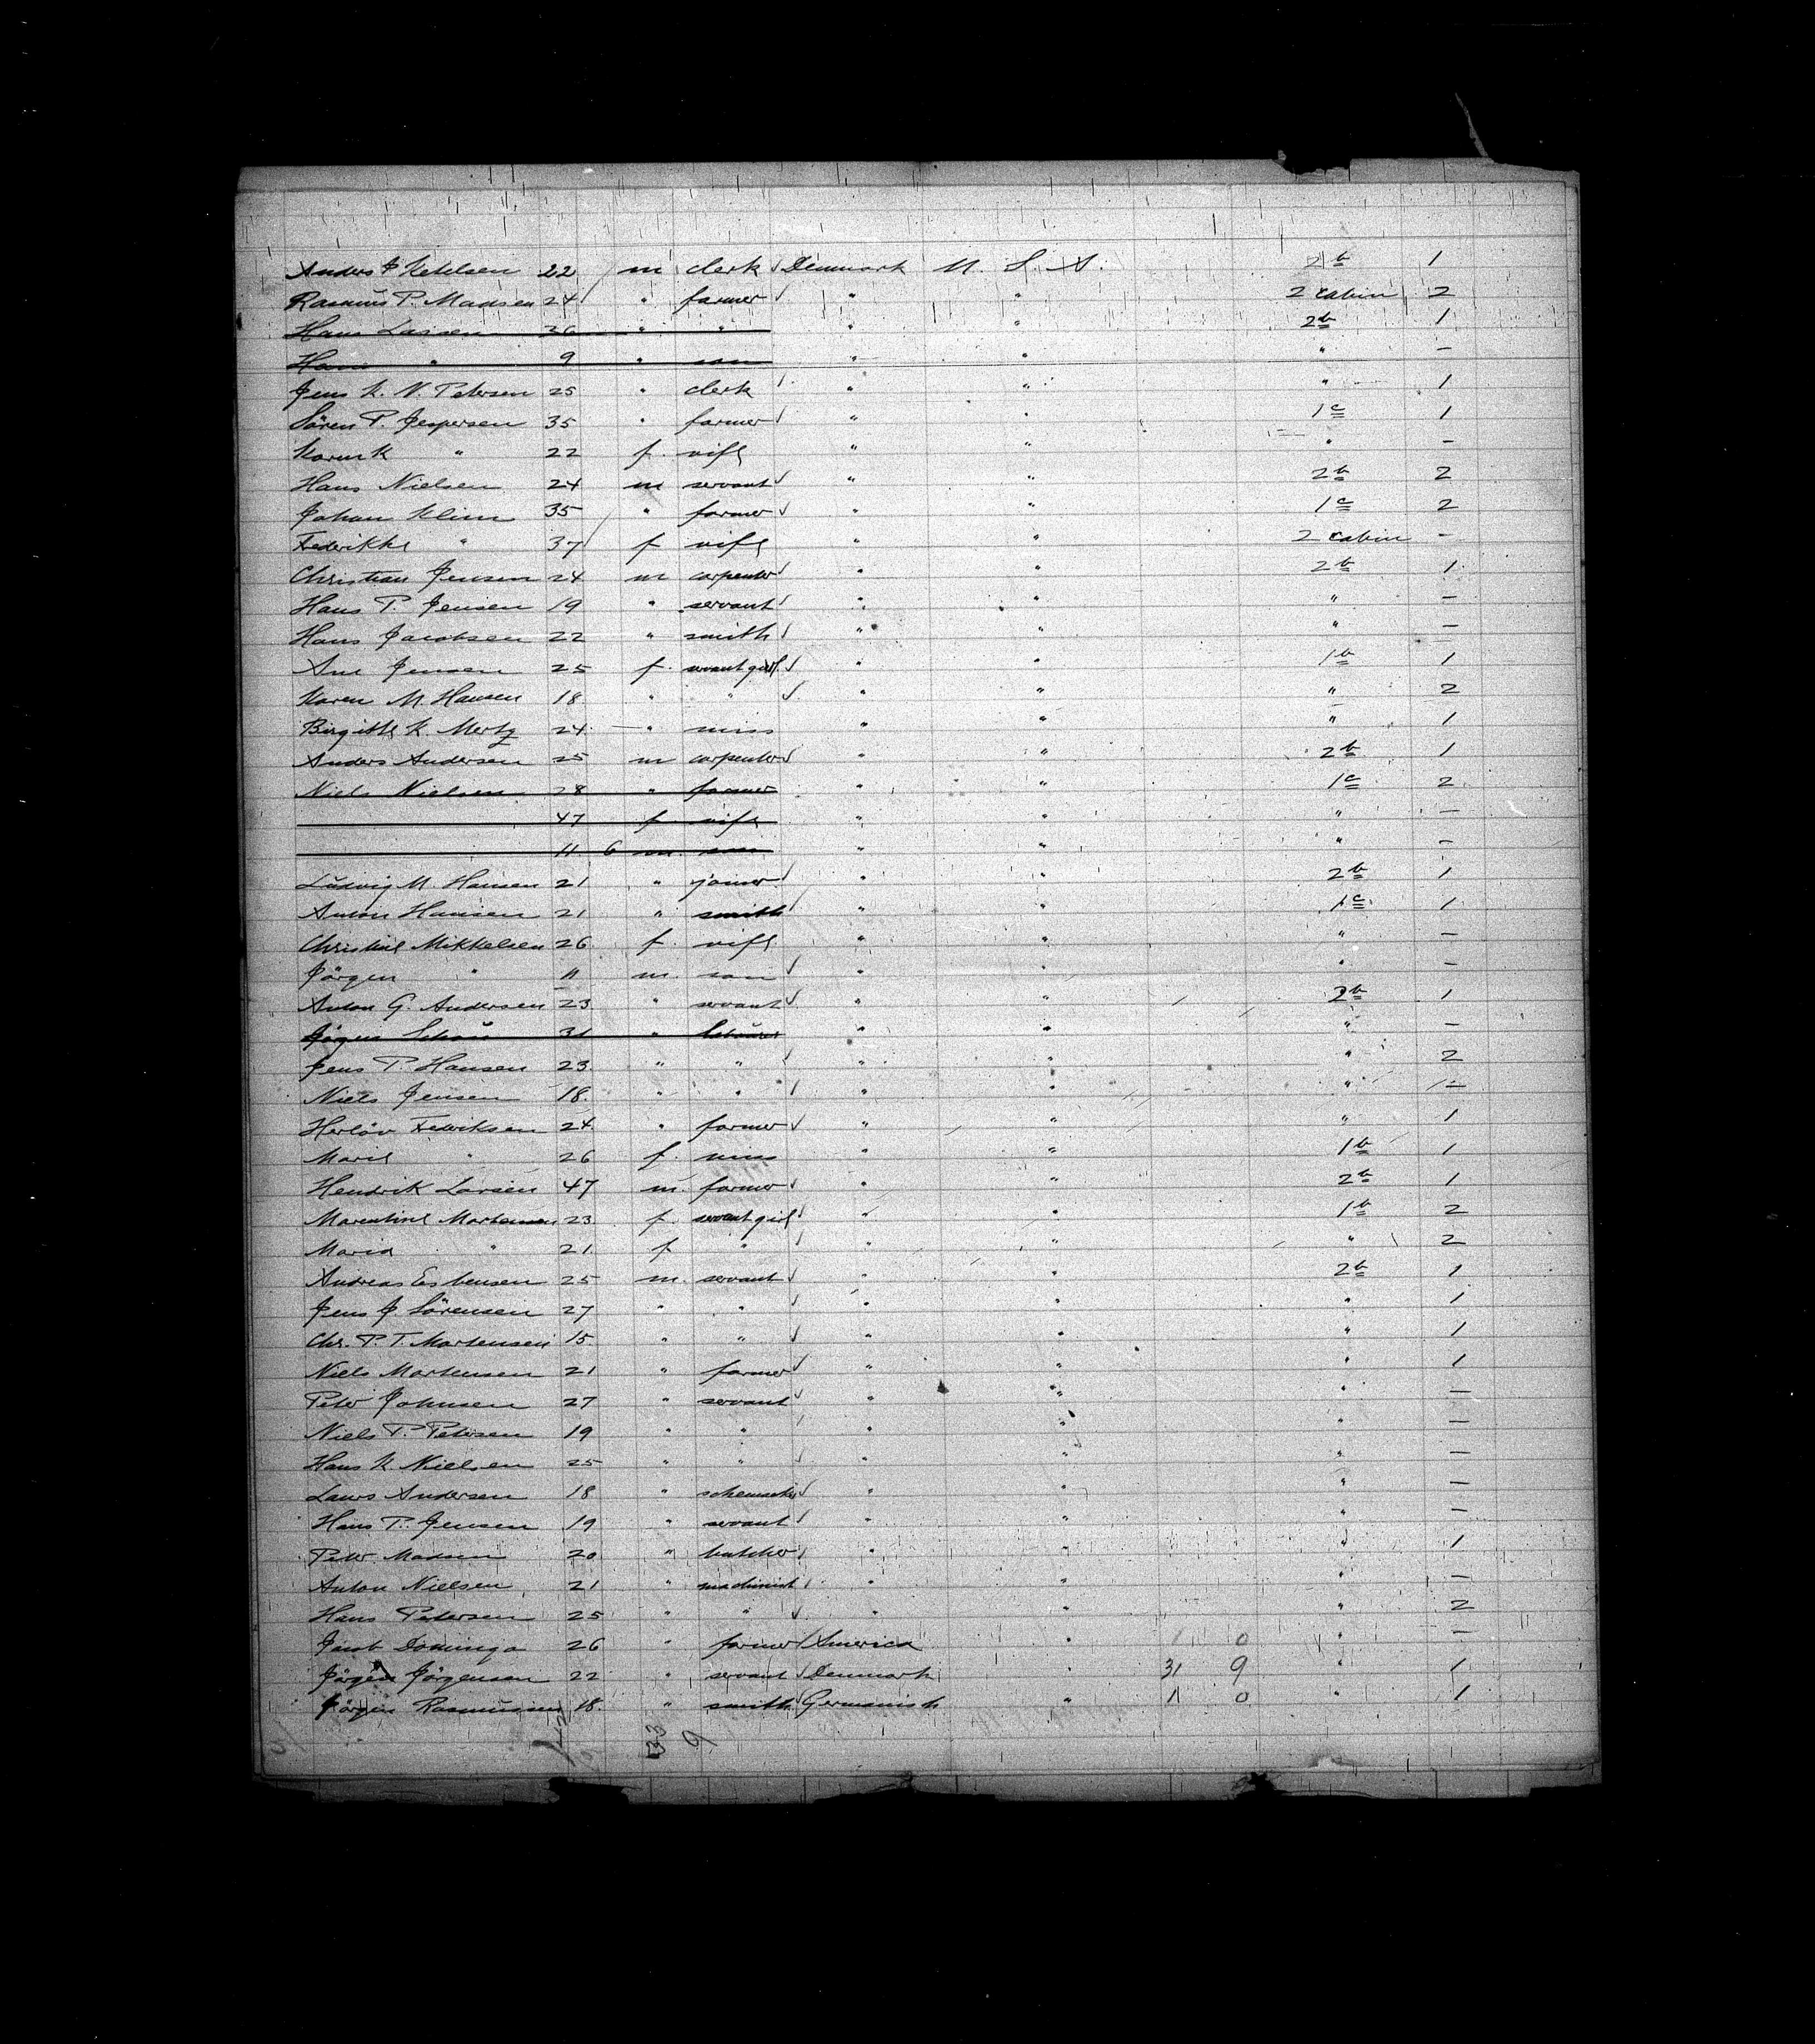 Anders P Ketelsen 22 m clerk Denmark U. S. A. 2b 1
Rasmus P. Madsen 24 " farmer " " 2 cabin 2
Hans Lassen 36 " " " " 2b 1
Hans " 9 " son " " " —
Jens K. N. Petersen 25 " clerk " " " 1
Sören P. Jespersen 35 " farmer " " 1c 1
Karen K " 22 f. vife " " " —
Hans Nielsen 24 m servant " " 2b 2
Johan Klim 35 " farmer " " 1c 2
Frederikke " 37 f vife " " 2 cabin —
Christian Jensen 24 m carpenter " " 2b 1
Hans P. Jensen 19 " servant " " " —
Hans Jacobsen 22 " smith " " " —
Ane Jensen 25 f. servant girl " " 1b 1
Karen M. Hansen 18 " " " " " 2
Birgitte K. Mertz 24 " miss " " " 1
Anders Andersen 25 m carpenter " " 2b 1
Niels Nielsen 28 " farmer " " 1c 2
47 f vife " " " —
11 6 m. son " " " —
Ludvig M. Hansen 21 " joiner " " 2b 1
Anton Hansen 21 " smith " " 1c 1
Christine Mikkelsen 26 f. vife " " " —
Jörgen " 11 m. son " " " —
Anton G. Andersen 23 " servant " " 2b 1
Jörgen Schou 31 " " " " —
Jens P. Hansen 23 " " " " " 2
Niels Jensen 18 " " " " " —
Herlöv Frederiksen 24 " farmer " " " 1
Marie " 26 f. miss " " 1b 1
Hendrik Larsen 47 m. farmer " " 2b 1
Marentine Mortensen 23 f. servant girl " " 1b 2
Maria " 21 f " " " " 2
Andreas Esbensen 25 m. servant " " 2b 1
Jens J. Sörensen 27 " " " " " 1
Chr. P. T. Mortensen 15 " " " " " 1
Niels Mortensen 21 " farmer " " " 1
Peter Johnsen 27 " servant " " " —
Niels P. Petersen 19 " " " " " —
Hans K. Nielsen 25 " " " " " —
Laurs Andersen 18 " " " " —
Hans P. Jensen 19 " servant " " " —
Peter Madsen 20 " butcher " " " 1
Anton Nielsen 21 " machinist " " " —
Hans Petersen 25 " " " " " 2
Jacob Domingo 26 " farmer America " 1 0 " —
Jörgen Jörgensen 22 " servant Denmark " 31 9 " 1
Jörgen Rasmussen 18 " smith Germanish " 1 0 " 1
33 9